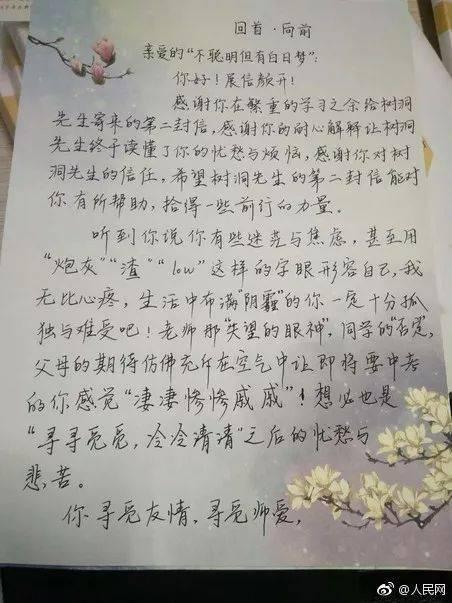 回首·向前
亲爱的“不聪明但有白日梦”:
你好!展信颜开!
感谢你在繁重的学习之余给树洞
先生寄来的第二封信,感谢你的耐心解释让树洞
先生终于读懂了你的忧愁与烦恼,感谢你对树
洞先生的信任,希望树洞先生的第二封信能对
你有所帮助,拾得一些前行的力量。
听到你说你有些迷茫与焦虑,甚至用
“炮灰”“渣”“low”这样的字眼形容自己,我
无比心疼,生活中布满“阴霾”的你一定十分孤
独与难受吧!老师那“失望的眼神”,同学的
父母的期待仿佛充斥在空气中让即将要中考
的你感觉“凄凄惨惨戚戚”!想必也是
“寻寻觅觅,冷冷清清”之后的忧愁与
悲苦。
你寻觅友情,寻觅师爱,
@人民网